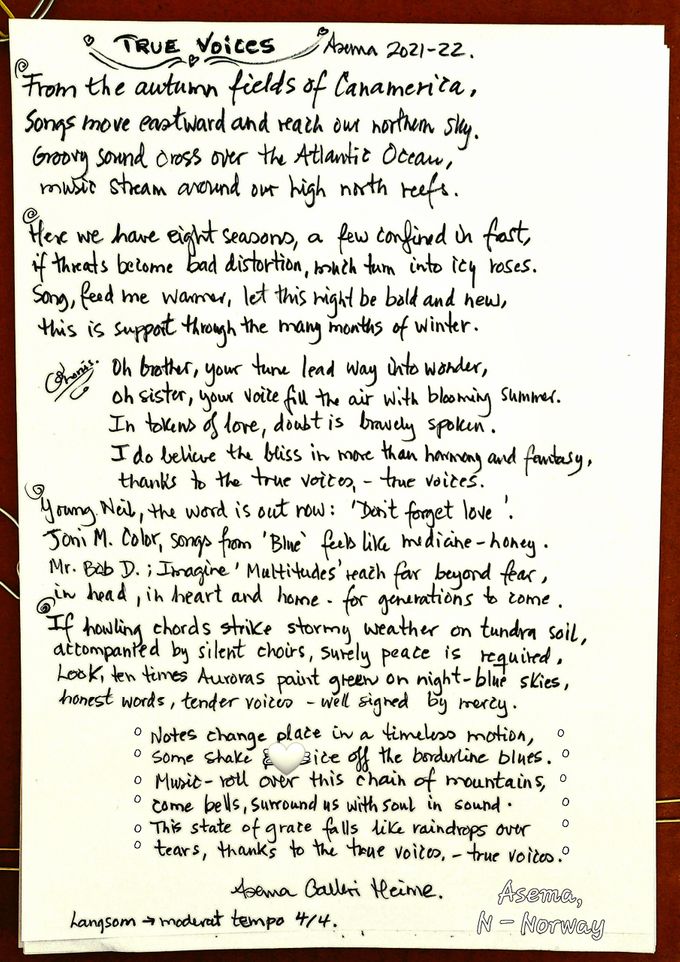 TRUE VOICES Asema 2021-22.
From the autumn fields of Canamerica,
Songs move eastward and reach our northern sky.
Groovy sound cross over the Atlantic Ocean,
music stream around our high north reefs.
Here we have eight seasons, a few confined in frost,
if threats become bad distortion, much turn into icy roses.
Song, feed me warmer, let this night be bold and new,
this is support through the many months of winter.
Chorus.
Oh brother, your tune lead way into wonder,
oh sister, your voice fill the air with blooming summer.
In tokens of love, doubt is bravely spoken.
I do believe the bliss in more than harmony and fantasy,
thanks to the true voices, - true voices.
Young Neil, the word is out now: 'Don't forget love'.
Joni M. Color, songs from 'Blue' feels like medicine-honey.
Mr. Bob D.; Imagine 'Multitudes' reach far beyond fear,
in head, in heart and home - for generations to come.
If howling chords strike stormy weather on tundra soil,
accompanied by silent choirs, surely peace is required.
Look, ten times Auroras paint green on night-blue skies,
honest words, tender voices - well signed by mercy.
Notes change place in a timeless motion,
Some shake ice off the borderline blues.
Music-roll over this chain of mountains,
come bells, surround us with soul in sound.
This state of grace falls like raindrops over
tears, thanks to the true voices, - true voices.
Asema Calleri Heime.
Langsom → moderat tempo 4/4.
Asema,
N - Norway